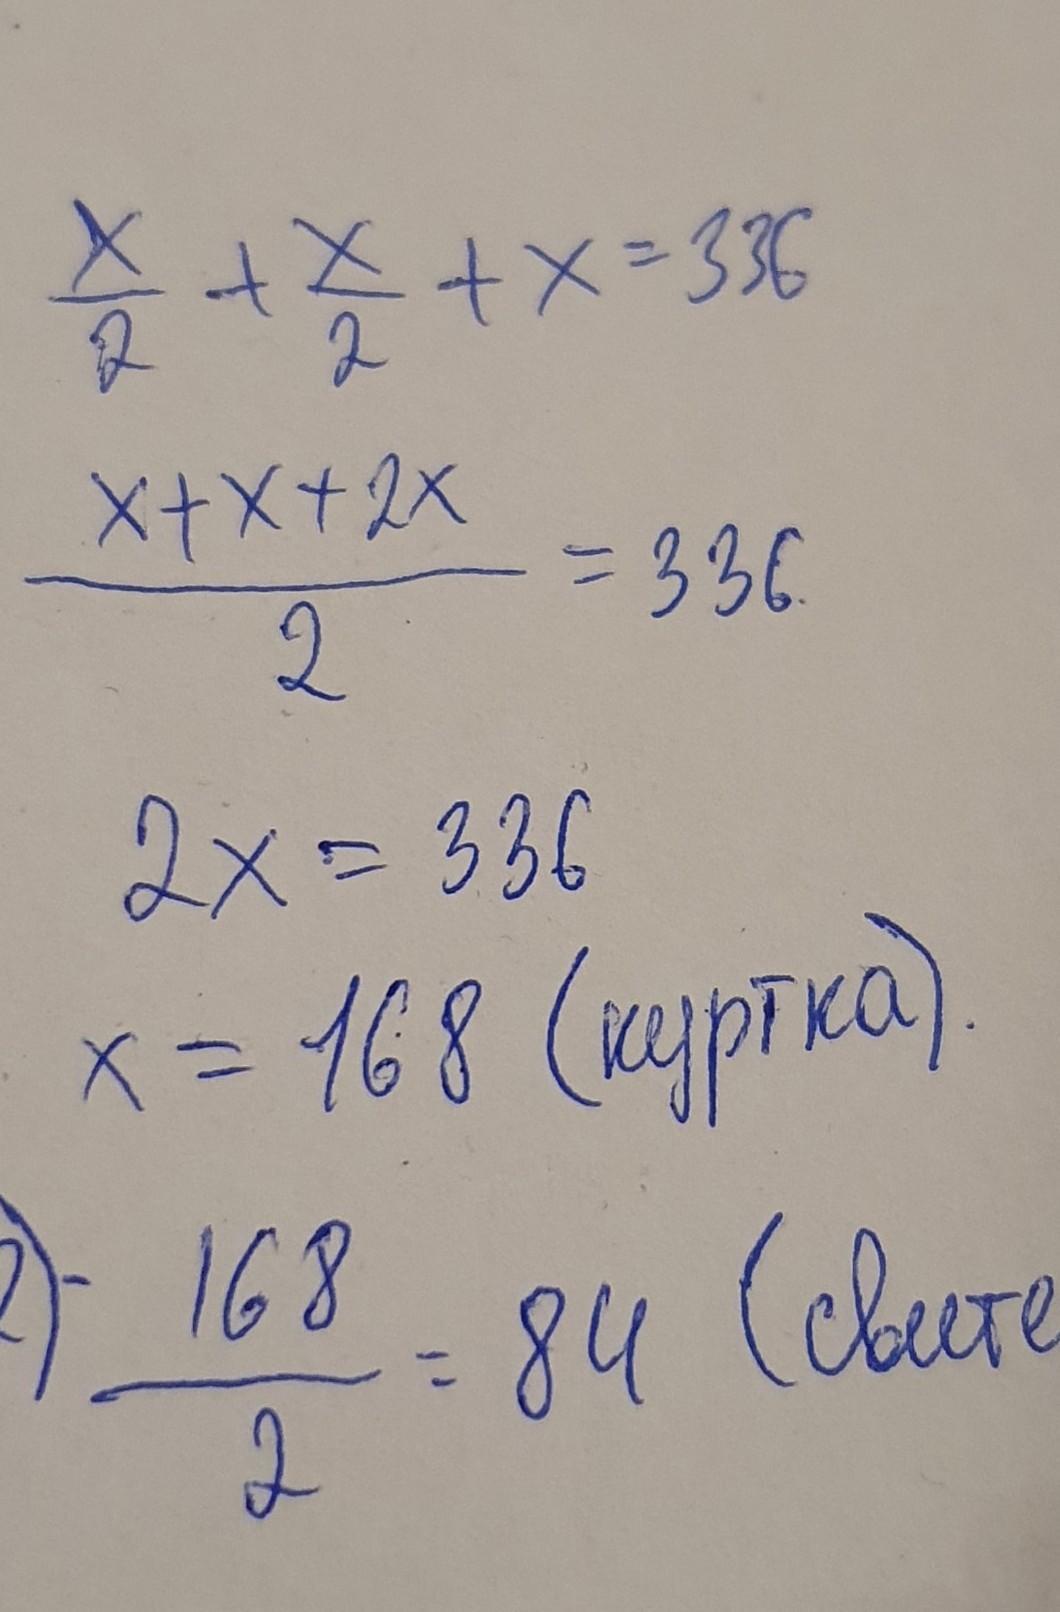 x/2 + x/2 + x = 336
(x+x+2x)/2 = 336.
2x = 336
x = 168 (куртка).
2) - 168/2 = 84 (свите